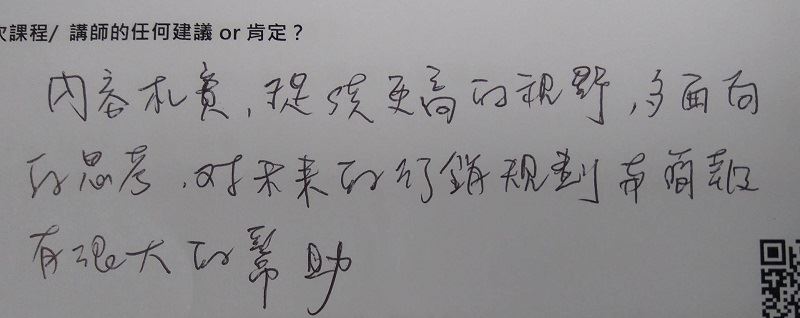 次課程/ 講師的任何建議 or 肯定？
內容札實，提供更高的視野，多面向
的思考，对未來的行銷規劃有簡報
有很大的幫助